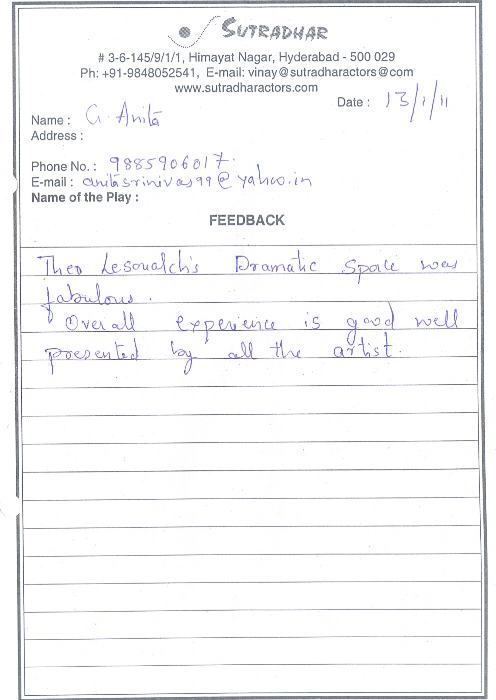 SUTRADHAR
# 3-6-145/9/1/1, Himayat Nagar, Hyderabad - 500 029
Ph: +91-9848052541, E-mail: vinay@sutradharactors@com
www.sutradharactors.com
Date : 13/1/11
Name : G. Anita
Address :
Phone No. : 9885906017.
E-mail : anitasrinivas99@yahoo.in
Name of the Play :
FEEDBACK
Theo Lesoualch's Dramatic Space was
fabulous.
Overall experience is good well
presented by all the artist.